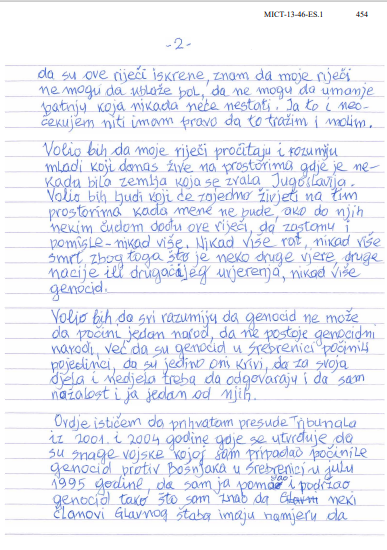 MICT-13-46-ES.1 454
-2-
da su ove riječi iskrene, znam da moje riječi
ne mogu da ublaže bol, da ne mogu da umanje
patnju koja nikada neće nestati. Ja to i neo-
čekujem niti imam pravo da to tražim i molim.
Volio bih da moje riječi pročitaju i razumiju
mladi koji danas žive na prostorima gdje je ne-
kada bila zemlja koja se zvala Jugoslavija.
Volio bih ljudi koji će zajedno živjeti na tim
prostorima kada mene ne bude, ako do njih
nekim čudom dođu ove riječi, da zastanu i
pomisle-nikad više. Nikad više rat, nikad više
smrt zbog toga što je neko druge vjere, druge
nacije ili drugačijeg uvjerenja, nikad više
genocid.
Volio bih da svi razumiju da genocid ne može
da počini jedan narod, da ne postoje genocidni
narodi, već da su genocid u Srebrenici počinili
pojedinci, da su jedino oni krivi, da za svoja
djela i nedjela treba da odgovaraju i da sam
nažalost i ja jedan od njih.
Ovdje ističem da prihvatam presude Tribunala
iz 2001. i 2004 godine gdje se utvrđuje da
su snage vojske kojoj sam pripadao počinile
genocid protiv Bošnjaka u Srebrenici u julu
1995 godine, da sam ja pomagao i podržao
genocid tako što sam znao da Glavni neki
članovi Glavnog štaba imaju namjeru da